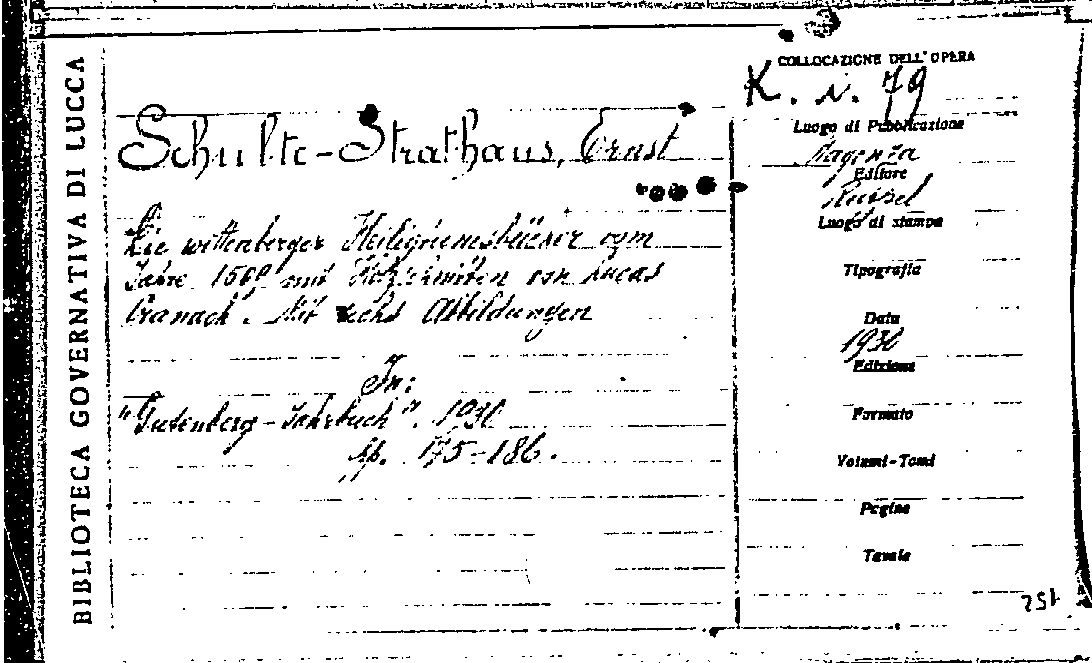 BIBLIOTECA GOVERNATIVA DI LUCCA
COLLOCAZIONE DELL'OPERA
K. i. 79
Schulte-Strathaus, Ernst
Die wittenberger Heiligtumsbücher vom
Jahre 1509 mit Holzschnitten von Lucas
Cranach. Mit sechs Abbildungen
In:
"Gutenberg-Jahrbuch". 1930
pp. 175-186.
Luogo di Pubblicazione
Magonza
Editore
Luogo di stampa
Tipografia
Data
1930
Edizione
Formato
Volumi-Tomi
Pagine
Tavole